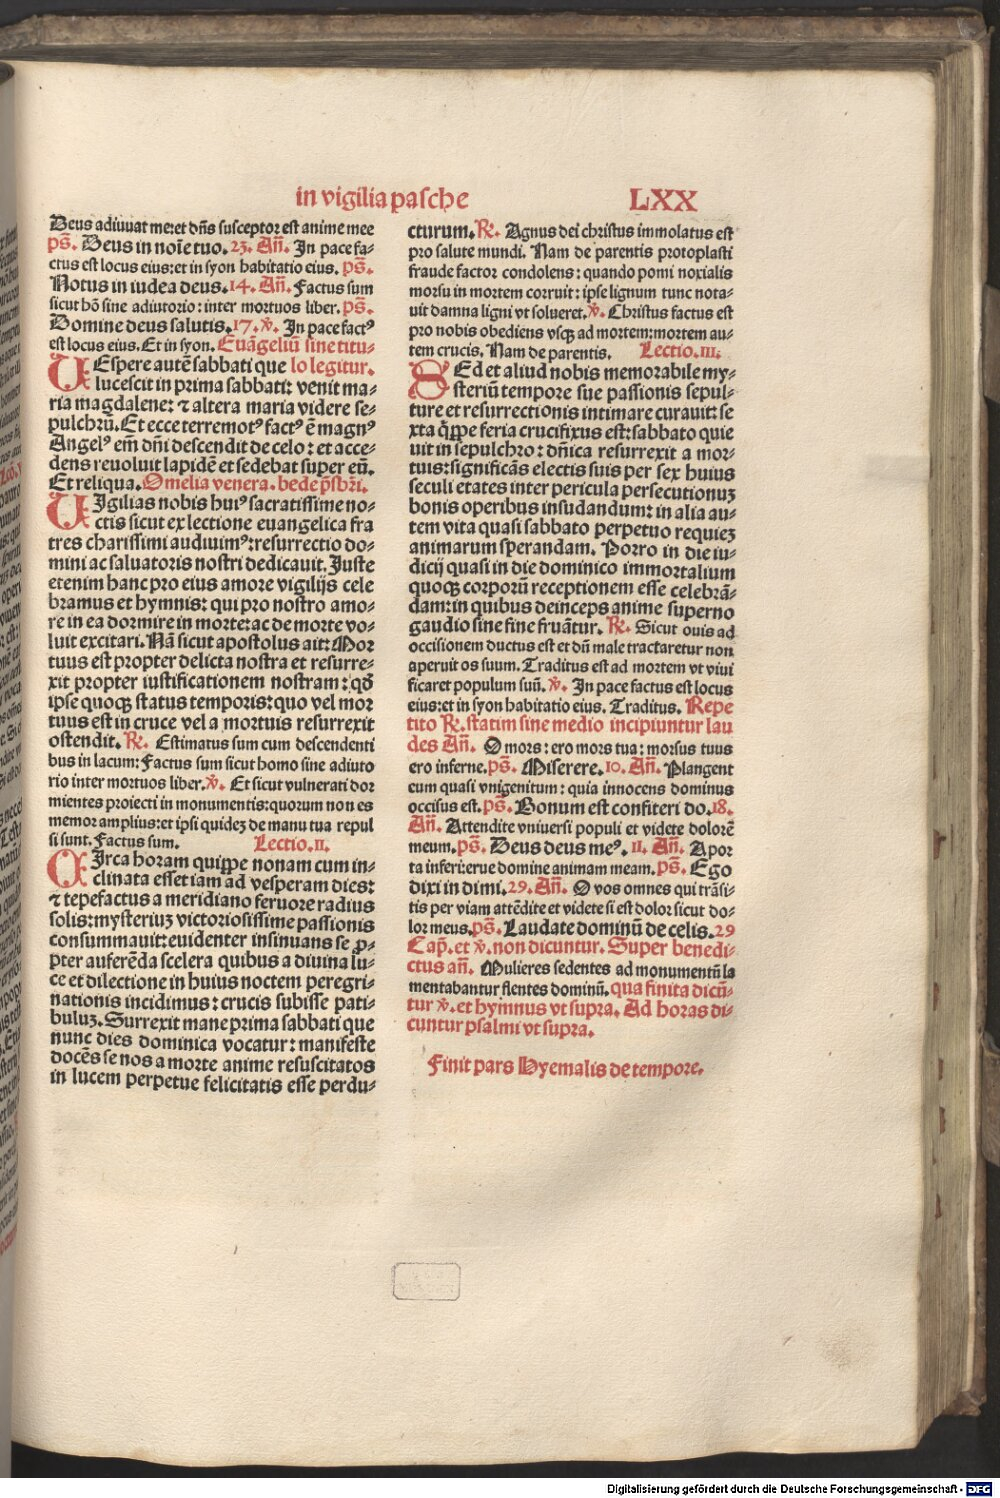 in vigilia pasche LXX
Deus adiuuat me:et dn̄s susceptor est anime mee
ps̄. Deus in noīe tuo. 23. An̄. In pace fa-
ctus est locus eius:et in syon habitatio eius. ps̄.
Notus in iudea deus. 14. An̄. Factus sum
sicut hō sine adiutorio: inter mortuos liber. ps̄.
Domine deus salutis. 17. v̄. In pace factꝰ
est locus eius. Et in syon. Euāgeliū sine titu-
lo legitur.
VEspere autē sabbati que
lucescit in prima sabbati: venit ma-
ria magdalene: ⁊ altera maria videre se-
pulchrū. Et ecce terremotꝰ factꝰ ē magnꝰ
Angelꝰ em̄ dn̄i descendit de celo: et acce-
dens reuoluit lapidē et sedebat super eū.
Et reliqua. Omelia venera. bede p̄sbr̄i.
VIgilias nobis huiꝰ sacratissime no-
ctis sicut ex lectione euangelica fra
tres charissimi audiuimꝰ: resurrectio do-
mini ac saluatoris nostri dedicauit. Juste
etenim hanc pro eius amore vigilijs cele
bramus et hymnis: qui pro nostro amo-
re in ea dormire in morte: ac de morte vo-
luit excitari. Nā sicut apostolus ait: Mor
tuus est propter delicta nostra et resurre-
xit propter iustificationem nostram: qđ
ipse quoqꝫ status temporis: quo vel mor
tuus est in cruce vel a mortuis resurrexit
ostendit. R̄. Estimatus sum cum descendenti
bus in lacum: Factus sum sicut homo sine adiuto
rio inter mortuos liber. v̄. Et sicut vulnerati dor
mientes proiecti in monumentis: quorum non es
memor amplius: et ipsi quideꝫ de manu tua repul
si sunt. Factus sum. Lectio. II.
CIrca horam quippe nonam cum in-
clinata esset iam ad vesperam dies:
⁊ tepefactus a meridiano feruore radius
solis: mysteriuꝫ victoriosissime passionis
consummauit: euidenter insinuans se ꝓ-
pter auferēda scelera quibus a diuina lu-
ce et dilectione in huius noctem peregri-
nationis incidimus: crucis subisse pati-
buluꝫ. Surrexit mane prima sabbati que
nunc dies dominica vocatur: manifeste
docēs se nos a morte anime resuscitatos
in lucem perpetue felicitatis esse perdu-
cturum. R̄. Agnus dei christus immolatus est
pro salute mundi. Nam de parentis protoplasti
fraude factor condolens: quando pomi noxialis
morsu in mortem corruit: ipse lignum tunc nota-
uit damna ligni vt solueret. v̄. Christus factus est
pro nobis obediens vsqꝫ ad mortem: mortem au-
tem crucis. Nam de parentis. Lectio. III.
SEd et aliud nobis memorabile my-
steriū tempore sue passionis sepul-
ture et resurrectionis intimare curauit: se
xta q̄ppe feria crucifixus est: sabbato quie
uit in sepulchro: dn̄ica resurrexit a mor-
tuis: significās electis suis per sex huius
seculi etates inter pericula persecutionuꝫ
bonis operibus insudandum: in alia au-
tem vita quasi sabbato perpetuo requieꝫ
animarum sperandam. Porro in die iu-
dicij quasi in die dominico immortalium
quoqꝫ corporū receptionem esse celebrā-
dam: in quibus deinceps anime superno
gaudio sine fine fruātur. R̄. Sicut ouis ad
occisionem ductus est et dū male tractaretur non
aperuit os suum. Traditus est ad mortem vt viui
ficaret populum suū. v̄. In pace factus est locus
eius: et in syon habitatio eius. Traditus. Repe
tito R̄. statim sine medio incipiuntur lau
des An̄. O mors: ero mors tua: morsus tuus
ero inferne. ps̄. Miserere. 10. An̄. Plangent
eum quasi vnigenitum: quia innocens dominus
occisus est. ps̄. Bonum est confiteri do. 18.
An̄. Attendite vniuersi populi et videte dolorē
meum. ps̄. Deus deus meꝰ. 11. An̄. A por
ta inferi: erue domine animam meam. ps̄. Ego
dixi in dimi. 29. An̄. O vos omnes qui trāsi-
tis per viam attēdite et videte si est dolor sicut do-
lor meus. ps̄. Laudate dominū de celis. 29
Cap̄. et v̄. non dicuntur. Super benedi-
ctus an̄. Mulieres sedentes ad monumentū la
mentabantur flentes dominū. qua finita dicū-
tur v̄. et hymnus vt supra. Ad horas di-
cuntur psalmi vt supra.
Finit pars Hyemalis de tempore.
Digitalisierung gefördert durch die Deutsche Forschungsgemeinschaft - DFG